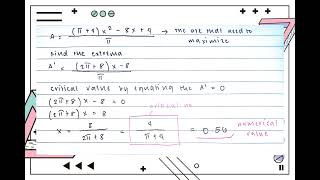 A = (π+4)x² - 8x + 4 / π → the one that need to maximize
Find the extrema
A' = (2π+8)x - 8 / π
critical values by equating the A' = 0
(2π+8)x - 8 = 0
(2π+8)x = 8
critical no.
x = 8 / 2π+8 = 4 / π+4 = 0.56 numerical value